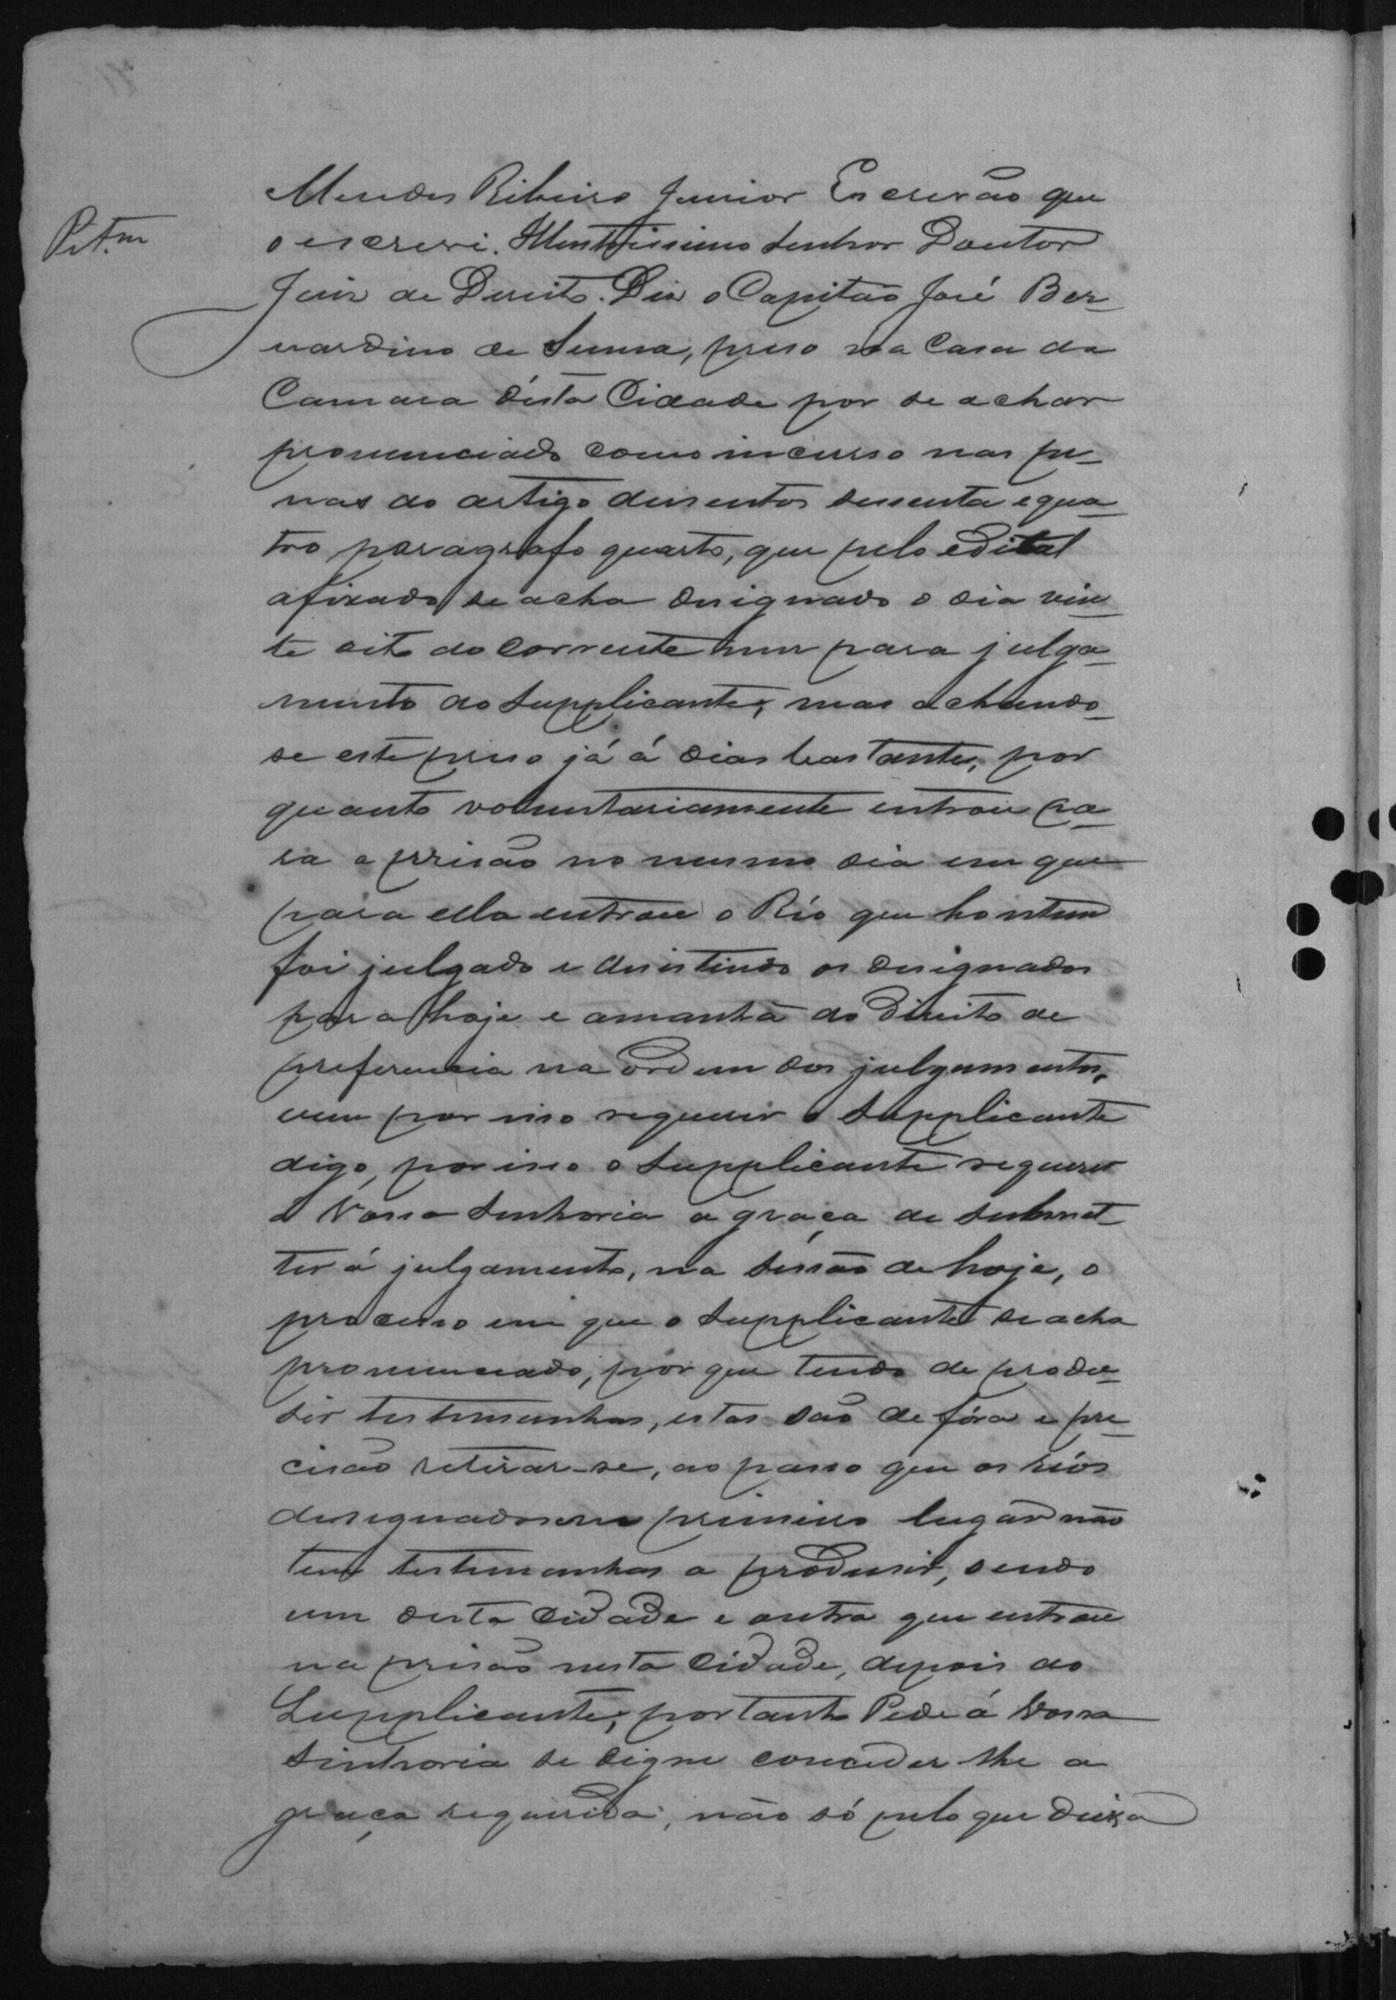 Pet.am
Mendes Ribeiro Junior Escrivão que
o escrevi. Illustrissimo Senhor Doutor
Juiz de Direito. Diz o Capitão José Ber-
nardino de Senna, preso na Casa da
Camara désta Cidade por se achar
pronunciado como incurso nas pe-
nas do artigo dusentos sessenta e qua-
tro paragrafo quarto, que pelo edital
afixado se acha designado o dia vin-
te oito do corrente mez para julga-
mento do Supplicante; mas achando-
se este preso já á dias bastantes, por
quanto voluntariamente entrou pa-
ra a prisão no mesmo dia em que
para ella entrou o Réo que hontem
foi julgado e desistindo os designados
para hoje e amanhã do Direito de
preferencia na ordem dos julgamentos,
vem por isso requerer o Supplicante
digo, por isso o Supplicante requerer
á Vossa Senhoria a graça de submet-
ter á julgamento, na sessão de hoje, o
processo em que o Supplicante se acha
pronunciado, por que tendo de produ-
sir testemunhas, estas são de fóra e pre-
cisão retirar-se, ao passo que os réos
designados em primeiro lugar não
tem testemunhas a produsir, sendo
um desta Cidade e outro que entrou
na prisão nesta Cidade, depois do
Supplicante; portanto Pede á Vossa
Sinhoria se digne conceder lhe a
graça requerida, não só pelo que deixa